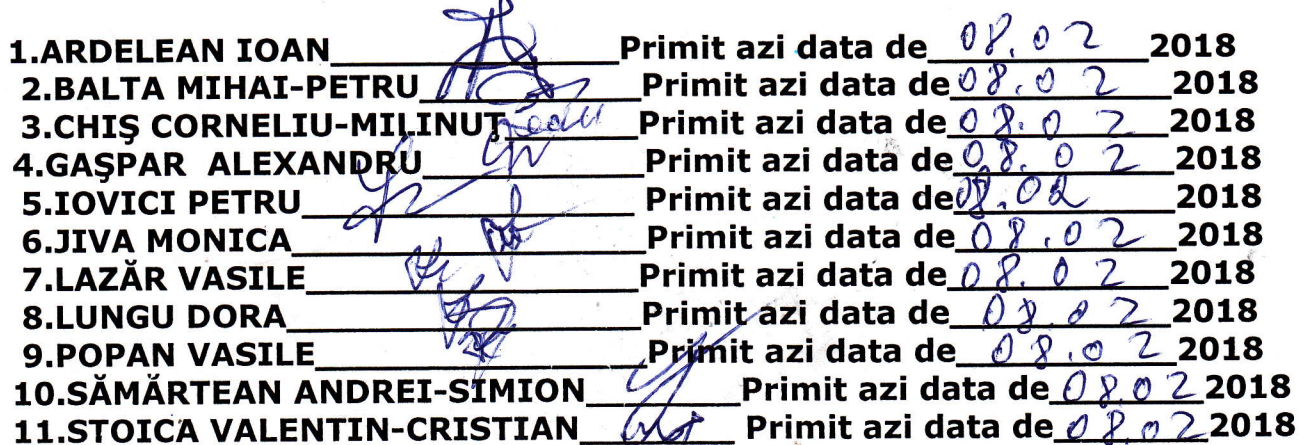 1.ARDELEAN IOAN____________________Primit azi data de 08.02 2018
2.BALTA MIHAI-PETRU________________Primit azi data de 08.02 2018
3.CHIŞ CORNELIU-MILINUŢ__________Primit azi data de 08.02 2018
4.GAŞPAR ALEXANDRU________________Primit azi data de 08.02 2018
5.IOVICI PETRU______________________Primit azi data de 08.02 2018
6.JIVA MONICA_______________________Primit azi data de 08.02 2018
7.LAZĂR VASILE______________________Primit azi data de 08.02 2018
8.LUNGU DORA_______________________Primit azi data de 08.02 2018
9.POPAN VASILE_____________________Primit azi data de 08.02 2018
10.SĂMĂRTEAN ANDREI-SIMION__________Primit azi data de 08.02 2018
11.STOICA VALENTIN-CRISTIAN__________Primit azi data de 08.02 2018